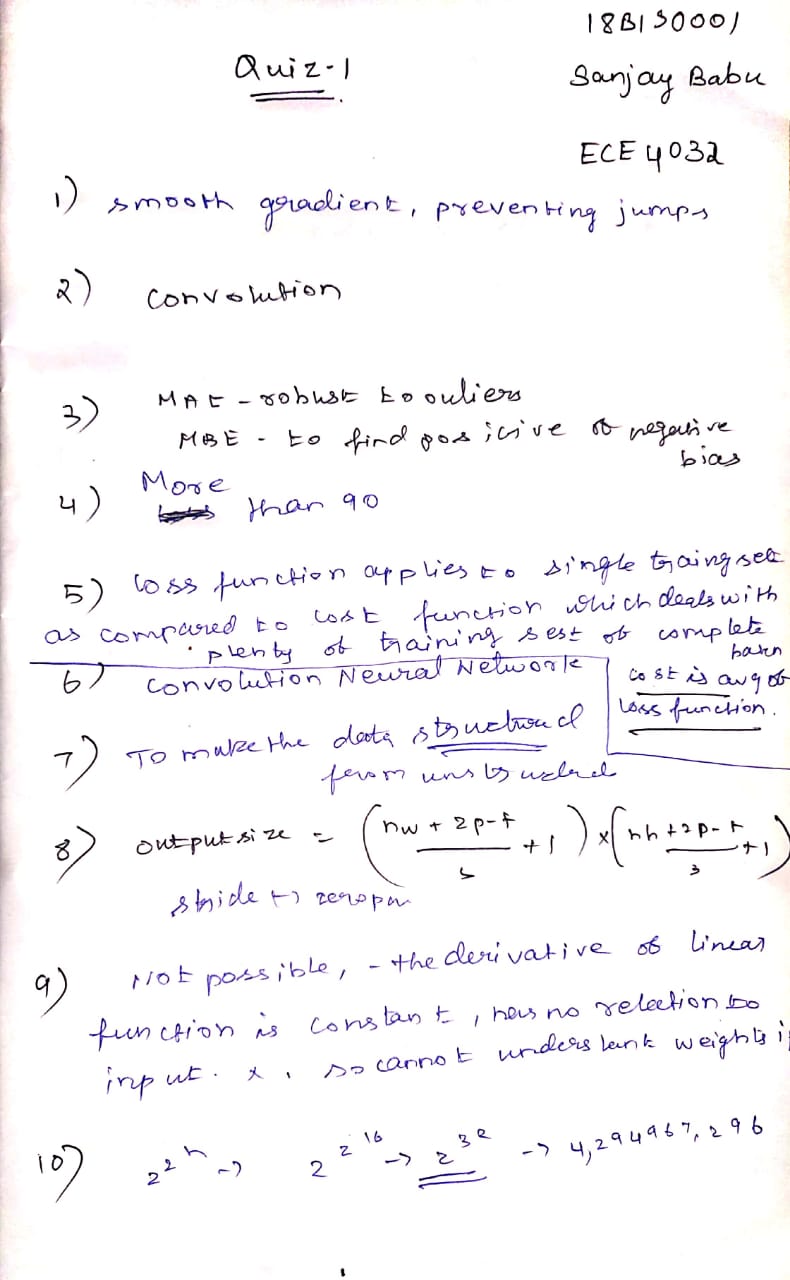 18BIS0001
Quiz-1
Sanjay Babu
ECE 4032
1) smooth gradient, preventing jumps
2) convolution
3) MAE - robust to ouliers
MBE - to find posicive or negative
bias
4) More
than 90
5) loss function applies to single traing set
as compared to cost function which deals with
plenty of training sest of complete
batch
6) Convolution Neural Network
cost is avg of
loss function.
7) To make the data structured
from
8) output size = (nw + 2p-f / s + 1) × (nh + 2p-f / s + 1)
stride
9) Not possible, - the derivative of linear
function is constant, has no relection to
input. x, so cannot weights
10) 2^2^n -> 2^2^16 -> 2^32 -> 4,294967,296